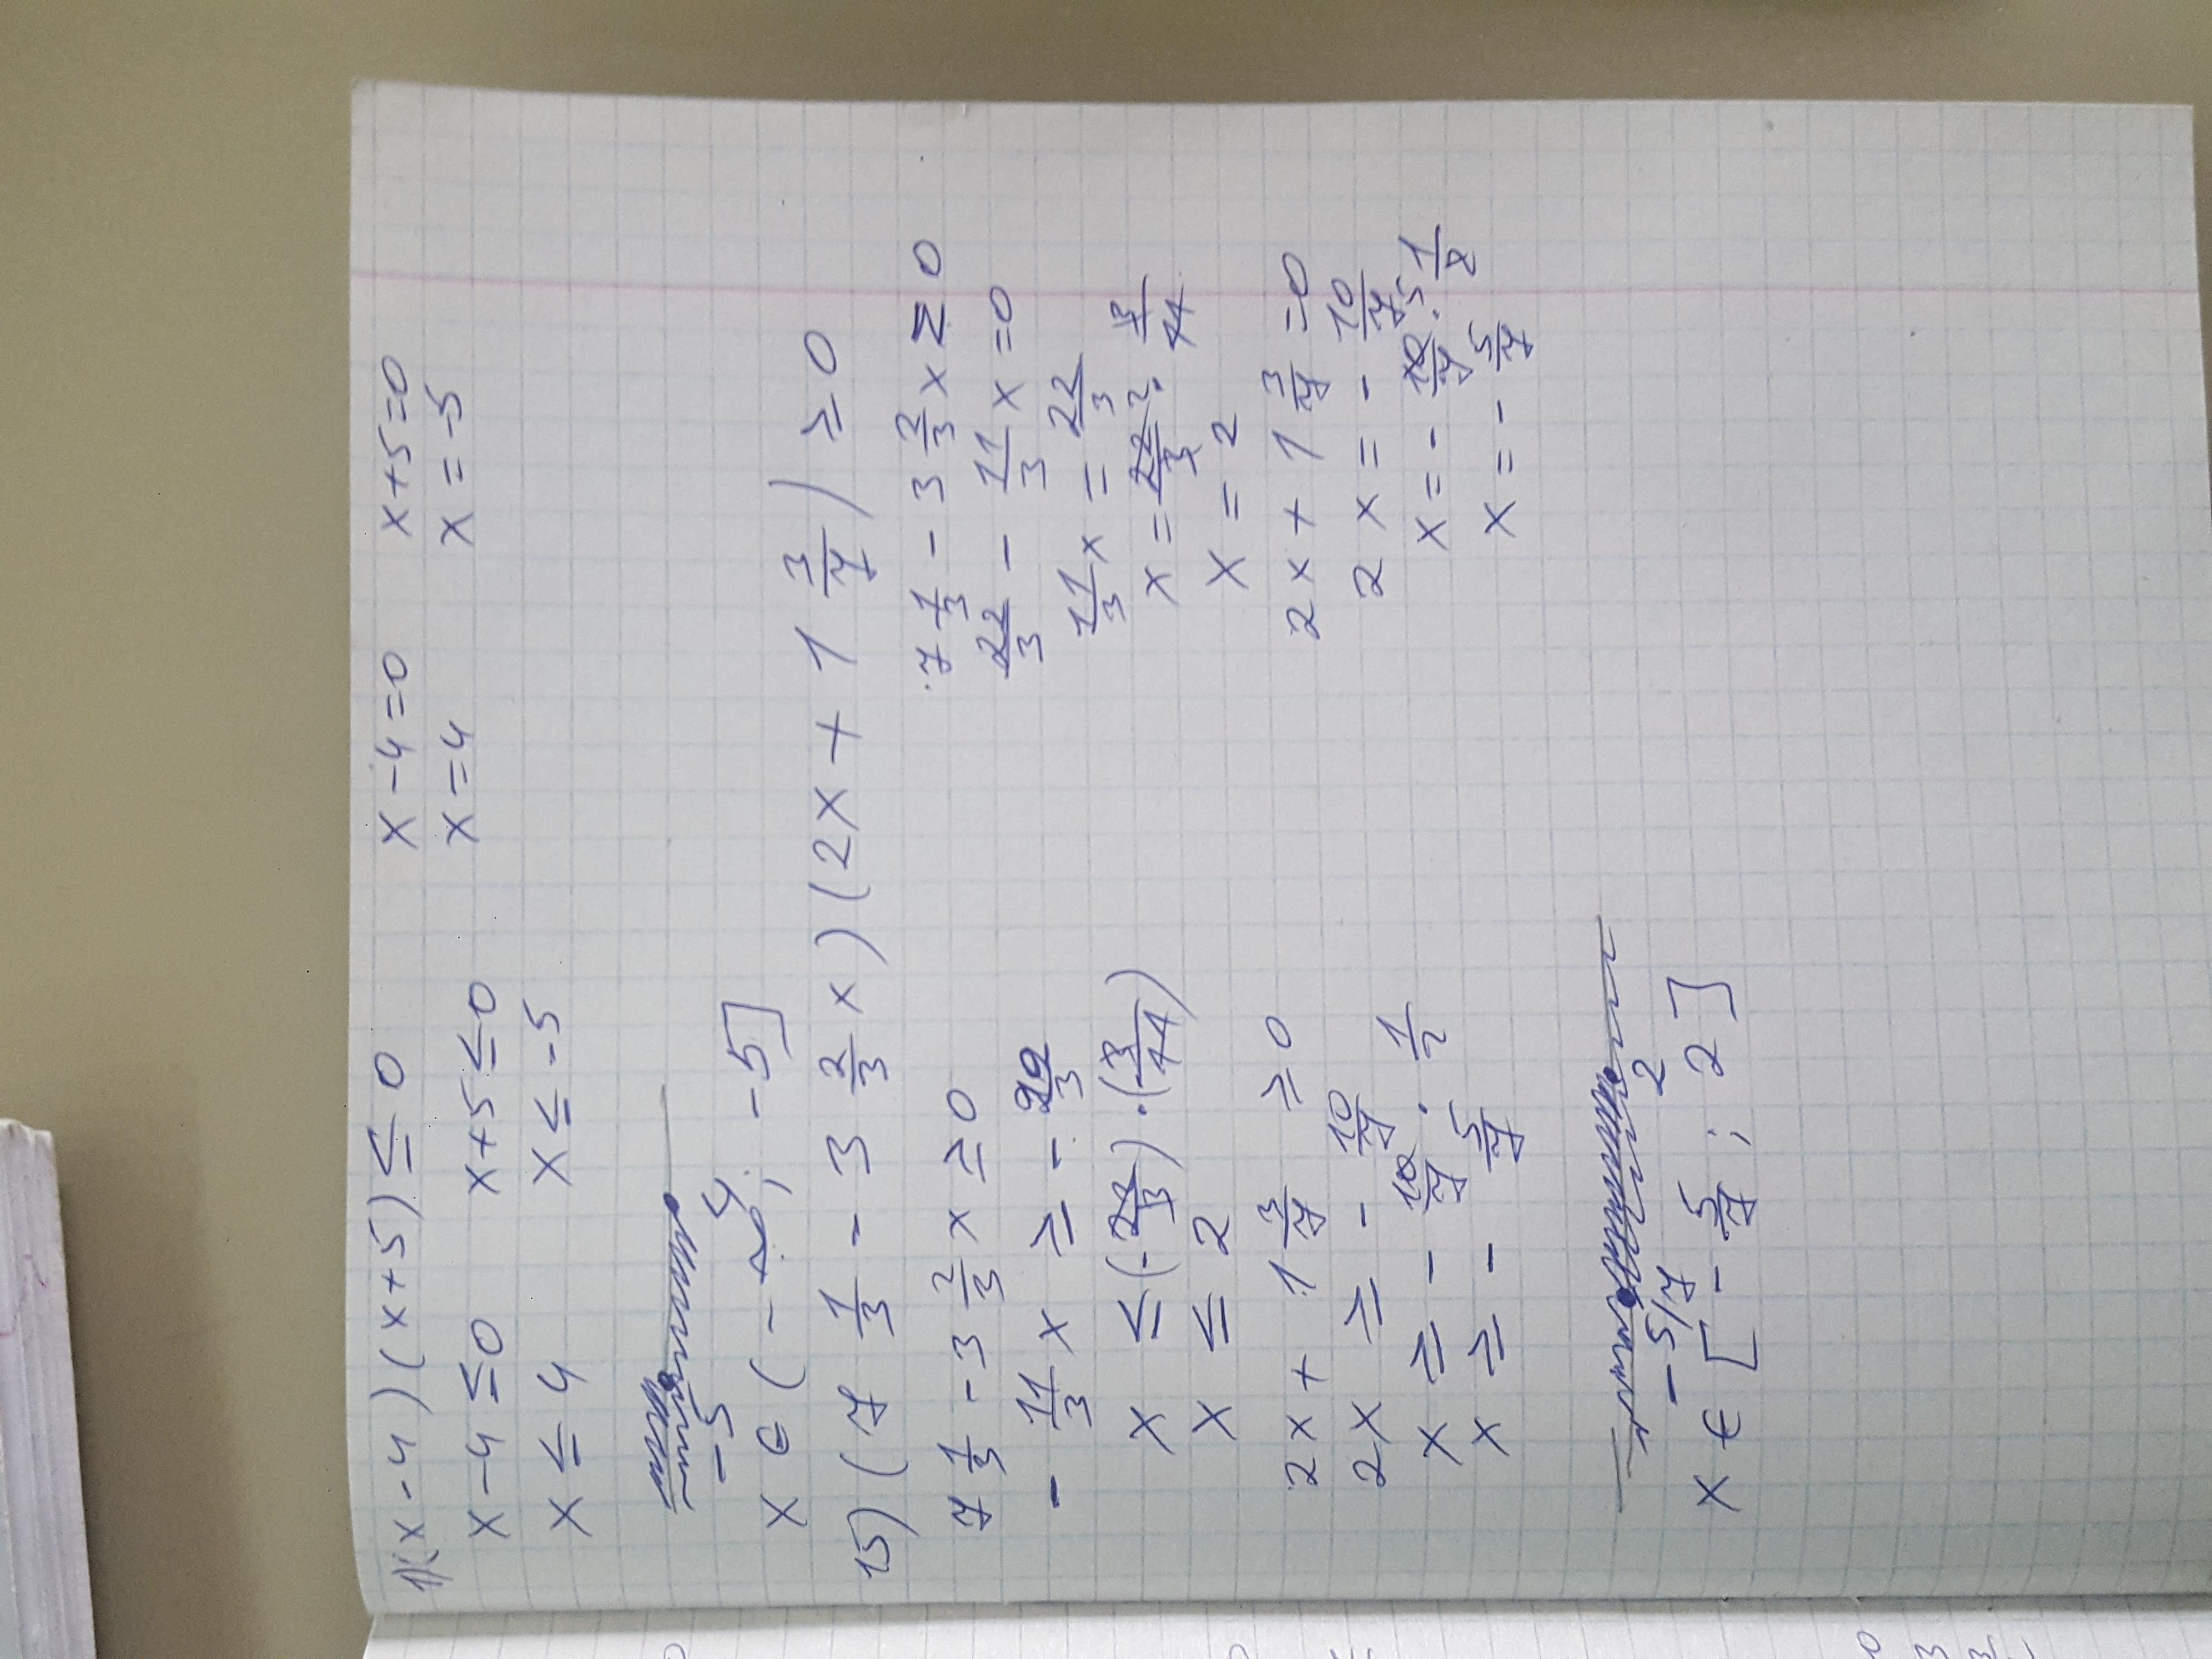 1) (x-4)(x+5) ≤ 0    x-4=0    x+5=0
x-4 ≤ 0    x+5 ≤ 0    x=4    x=-5
x ≤ 4    x ≤ -5
-5    4
x ∈ (-∞; -5]
15) (7 1/3 - 3 2/3 x)(2x + 1 3/7) ≥ 0
7 1/3 - 3 2/3 x ≥ 0    7 1/3 - 3 2/3 x ≥ 0
- 11/3 x ≥ - 22/3    22/3 - 11/3 x = 0
x ≤ (- 22/3) · (- 3/11)    11/3 x = 22/3
x ≤ 2    x = 22/3 2 · 3/11
2x + 1 3/7 ≥ 0    x = 2
2x ≥ - 10/7    2x + 1 3/7 = 0
x ≥ - 10/7 · 1/2    2x = - 10/7
x ≥ - 5/7    x = - 10/7 5 · 1/2
x = - 5/7
-5/7    2
x ∈ [- 5/7 ; 2]